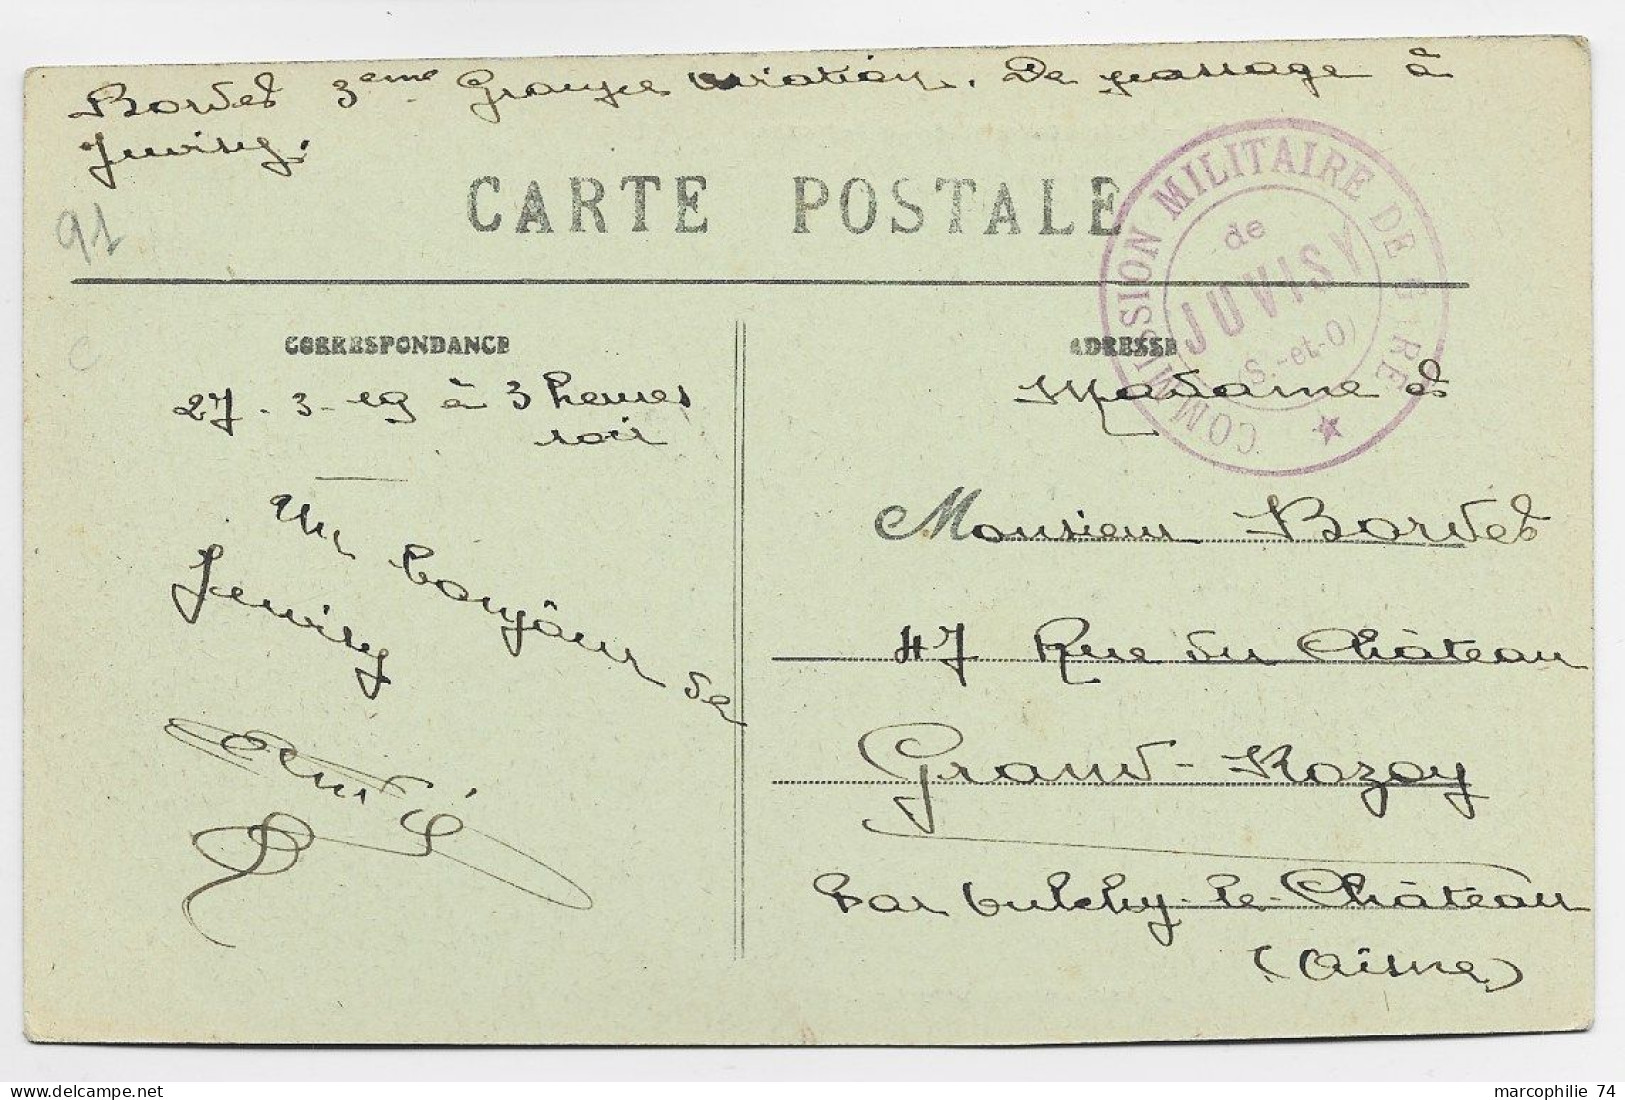 Bordes 3eme Groupe aviation. De passage à
Juvisy.
91
CARTE POSTALE
COMMISSION MILITAIRE DE GARE
de
JUVISY
(S.-et-O)
CORRESPONDANCE
27-3-19 à 3 heures
soir
Un bonjour de
Juvisy
ADRESSE
Madame et
Monsieur Bordes
47 Rue du Château
Grand-Rozoy
Par Oulchy-le-Château
(Aisne)
marcophilie 74